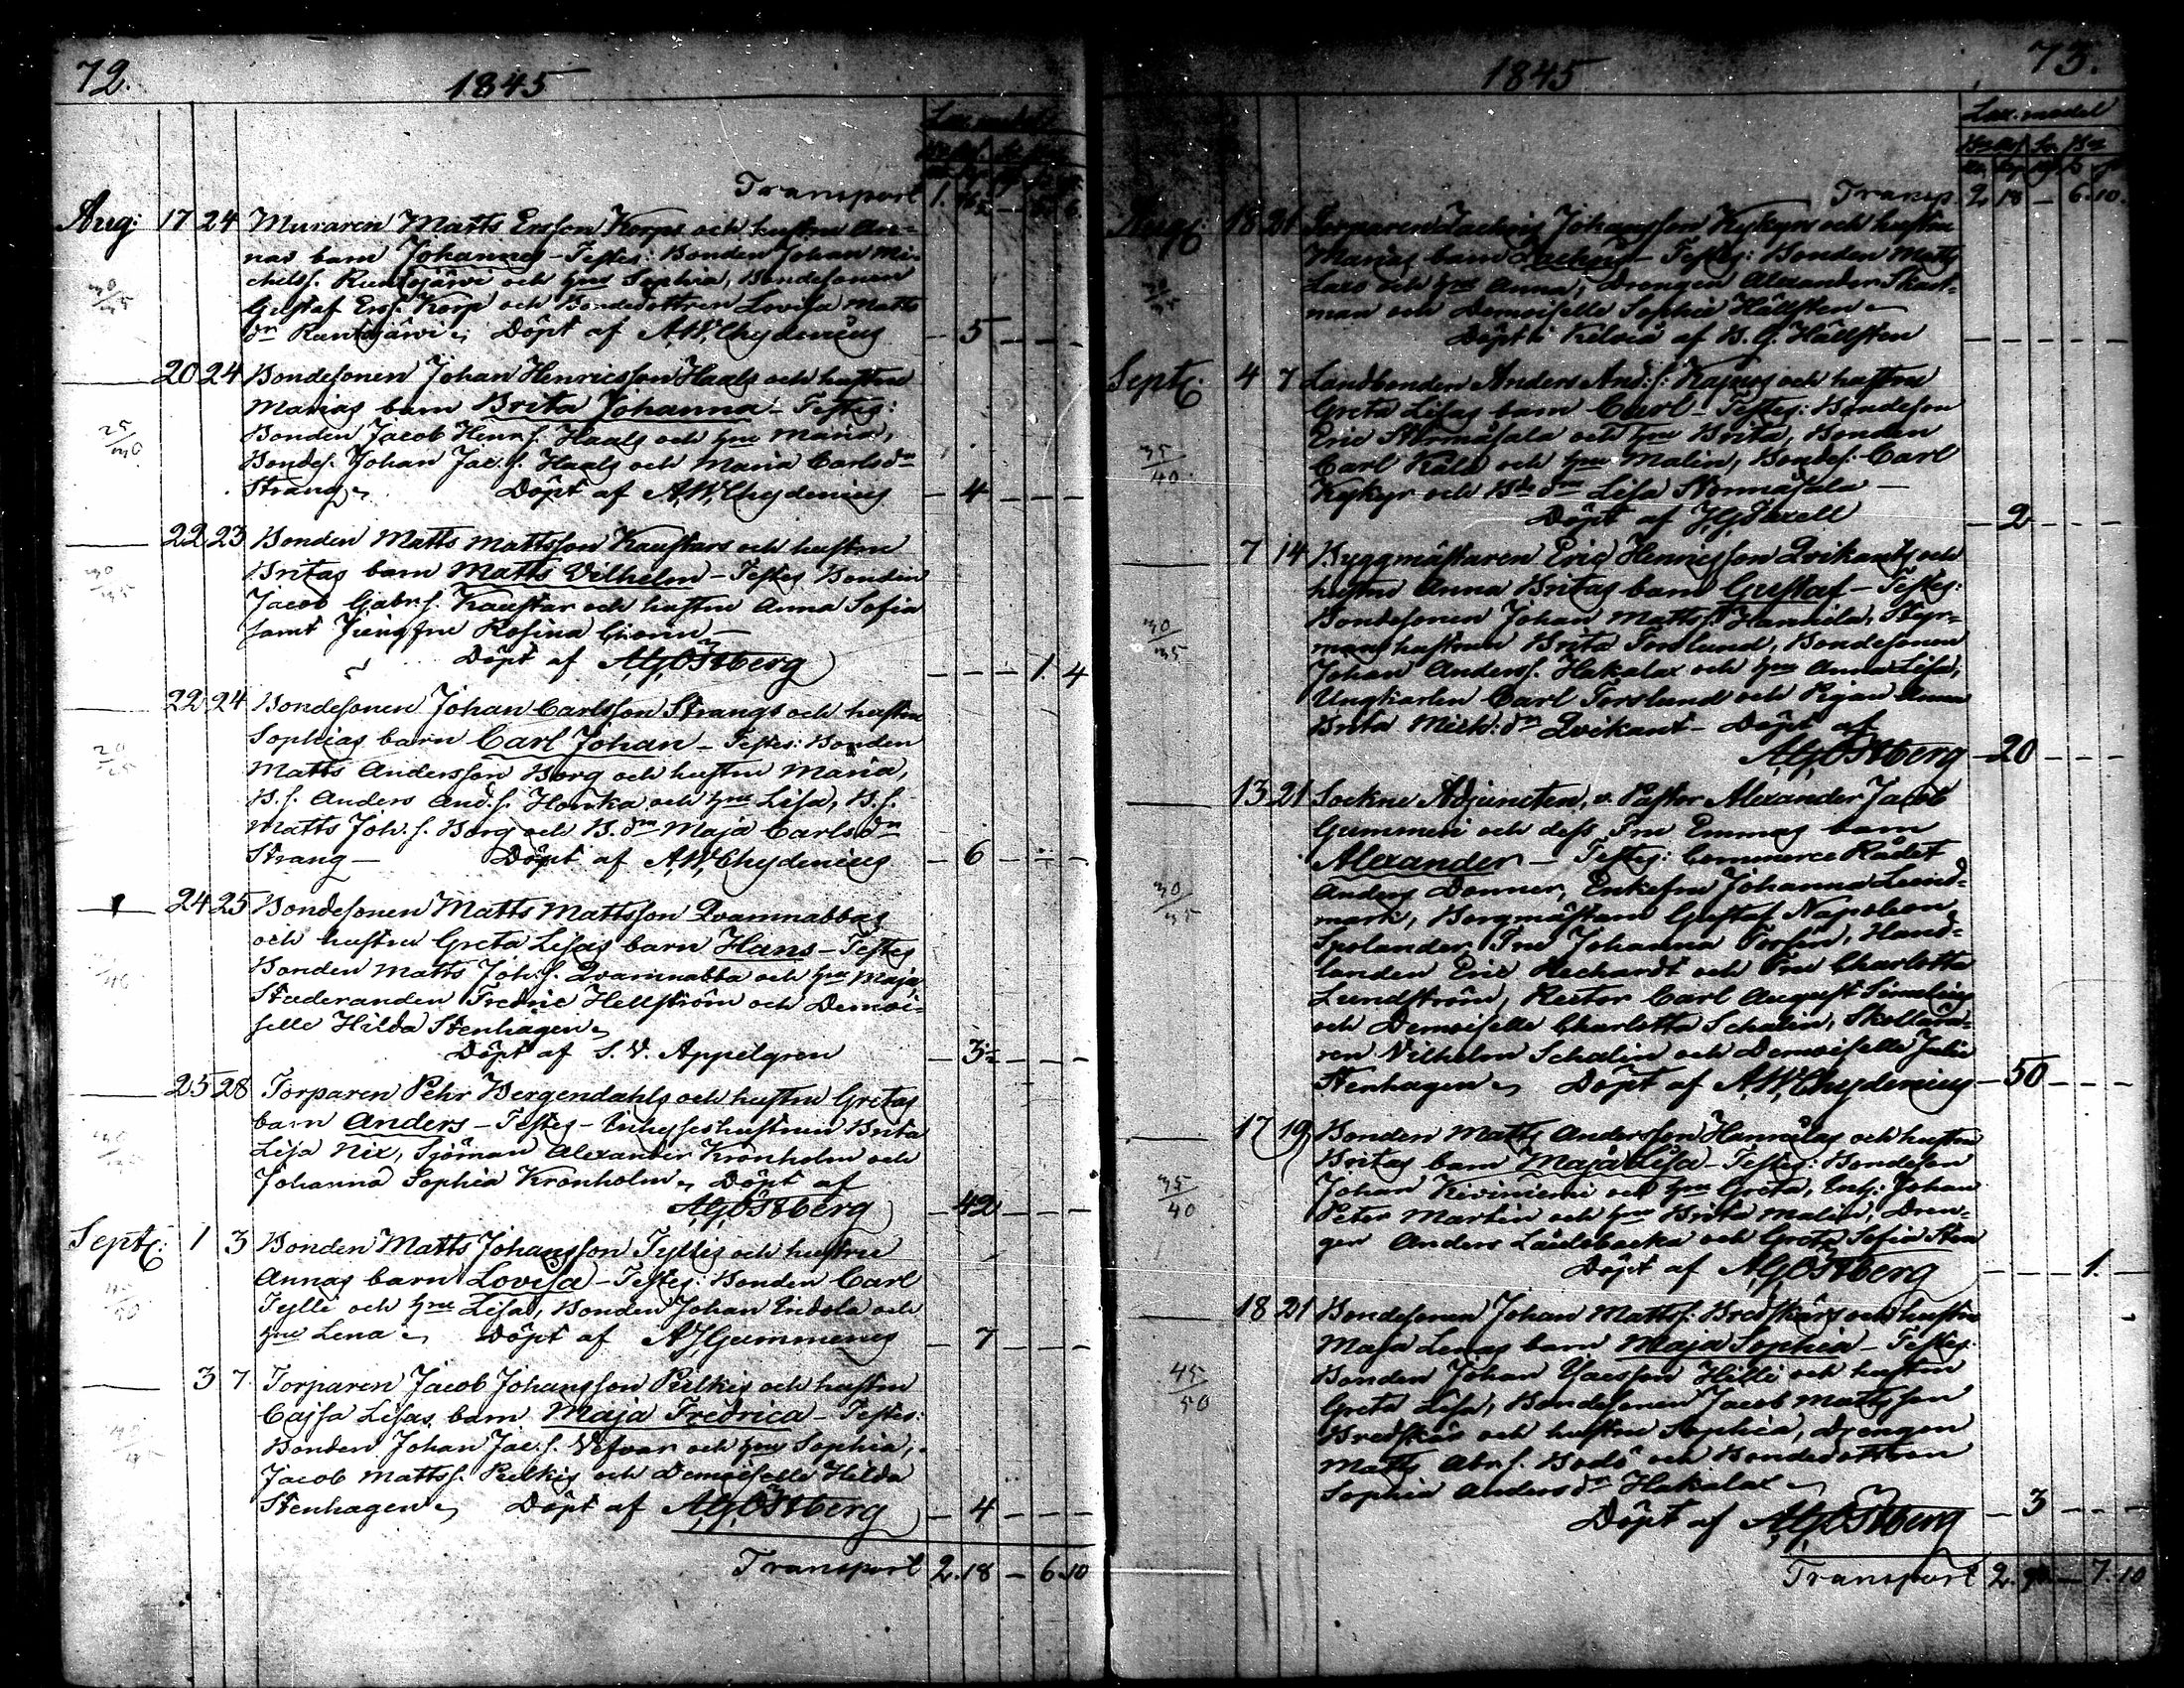 72.
1845
Transport 1.
Aug: 17 24 Muraren Matts Ersson Korps och hustru
nas barn Johannes - Testes: Bonden Johan Mi-
chelss. Runtujärvi och hru Sophia, Bondesonen
Gustaf Erss. Korp och Bondedottren Lovisa Matts
dr Runtujärvi. Döpt af A.W. Chydenius — 5 — — —
20 24 Bondesonen Johan Henricsson Haals och hustru
25/30
Marias barn Brita Johanna - Testes:
Bonden Jacob Henr.s. Haals och hru Maria,
Bondes. Johan Jac.s. Haals och Maria Carlsdr
Strang. Döpt af A.W. Chydenius — 4 — — —
22 23 Bonden Matts Mattsson Kaustars och hustru
30/35
Britas barn Matts Vilhelm - Testes Bonden
Jacob Gabr.s. Kaustar och hustru Anna Sofia
samt Jungfru Rosina
Döpt af A.G. Östberg — — — 1. 4
22 24 Bondesonen Johan Carlsson Strangs och hustru
20/25
Sophias barn Carl Johan - Testes: Bonden
Matts Andersson Borg och hustru Maria,
B.s. Anders And.s. Honka och hru Lisa, B.s.
Matts Joh.s. Borg och B.dr Maja Carlsdr
Strang — Döpt af A.W. Chydenius — 6 — — —
24 25 Bondesonen Matts Mattsson Qvarnabbas
och hustru Greta Lisas barn Hans - Testes
Bonden Matts Joh.s. Qvarnabba och hru Maja,
Studeranden Fredric Hellström och Demoi-
selle Hilda Stenhagen.
Döpt af S.V. Appelgren — 3 — — —
25 28 Torparen Pehr Bergendahls och hustru Gretas
barn Anders - Testes - Inhyseshustrun Brita
Lisa Nix, Sjöman Alexander Kronholm och
Johanna Sophia Kronholm. Döpt af
A.G. Östberg — 42 — — —
Septr: 1 3 Bonden Matts Johansson Tyllis och hustru
45/50
Annas barn Lovisa - Testes: Bonden Carl
Tylli och hru Lisa, Bonden Johan Indola och
hru Lena. Döpt af A.J. Gummerus — 7 — — —
3 7 Torparen Jacob Johansson Pulkis och hustru
Cajsa Lisas barn Maja Fredrica - Testes:
Bonden Johan Jac.s. Vefvar och hru Sophia,
Jacob Mattss. Pulkis och Demoiselle Hilda
Stenhagen. Döpt af A.G. Östberg — 4 — — —
Transport 2. 18 — 6. 10
1845
73.
Transp. 2. 18 — 6. 10.
Aug: 18 21 Torparen Zachris Johansson Kykyrs och hustru
30/35
Marias barn Zachris - Testes: Bonden Matts
Lass och hru Anna, Drengen Alexander Skart-
man och Demoiselle Sophie Hällsten
Döpt i Kelviå af B.G. Hällsten — — — — —
Septr: 4 7 Landbonden Anders And:s: Kajnus och hustru
35/40
Greta Lisas barn Carl - Testes: Bondeson
Eric Normåsala och hru Brita, Bonden
Carl Kåla och hru Malin, Bondes. Carl
Kykyr och Bdedrn Lisa Normåsala —
Döpt af — 2 — — —
7 14 Byggmästaren Eric Henricsson Qvikants och
30/35
hustru Anna Britas barn Gustaf - Testes:
Bondesonen Johan Mattss. Hannila, Styr-
mans hustrun Brita Forslund, Bondesonen
Johan Anderss. Hakalax och hru Anna Lisa,
Ungkarlen Carl Forslund och Pigan Anna
Brita Mich:dr Qvikant - Döpt af
A.G. Östberg — 20 — — —
13 21 Sockne Adjuncten, v. Pastor Alexander Jacob
30/35
Gummeri och dess Fru Emmas barn
Alexander - Testes: Commerce Rådet
Anders Donner, Enkefru Johanna Lind-
mark, Borgmästare Gustaf Napoleon
Spolander, Fru Johanna Forsén, Hand-
landen Eric Rechardt och Fru Charlotta
Lundström, Rector Carl August Simelius
och Demoiselle Charlotta Schalin, Skollära-
ren Vilhelm Schalin och Demoiselle Julie
Stenhagen. Döpt af A.W. Chydenius — 50 — — —
17 19 Bonden Matts Andersson Hannilas och hustru
35/40
Britas barn Maja Lisa - Testes: Bondeson
Johan Kiviniemi och hru Greta, Inh: Johan
Peter Martin och hru Brita Malin, Dren-
gen Anders Låulebacka och Greta Sofia Sten
Döpt af A.G. Östberg — — — 1. —
18 21 Bondesonen Johan Mattss. Bredskärs och hustru
45/50
Maja Lenas barn Maja Sophia - Testes:
Bonden Johan Isacsson Hilli och hustru
Greta Lisa, Bondesonen Jacob Mattsson
Bredskär och hustru Sophia, Drengen
Matts Abr.s. Bodö och Bondedottren
Sophia Andersdr Hakalax
Döpt af A.G. Östberg — 3 — — —
Transport 2. — 7. 10